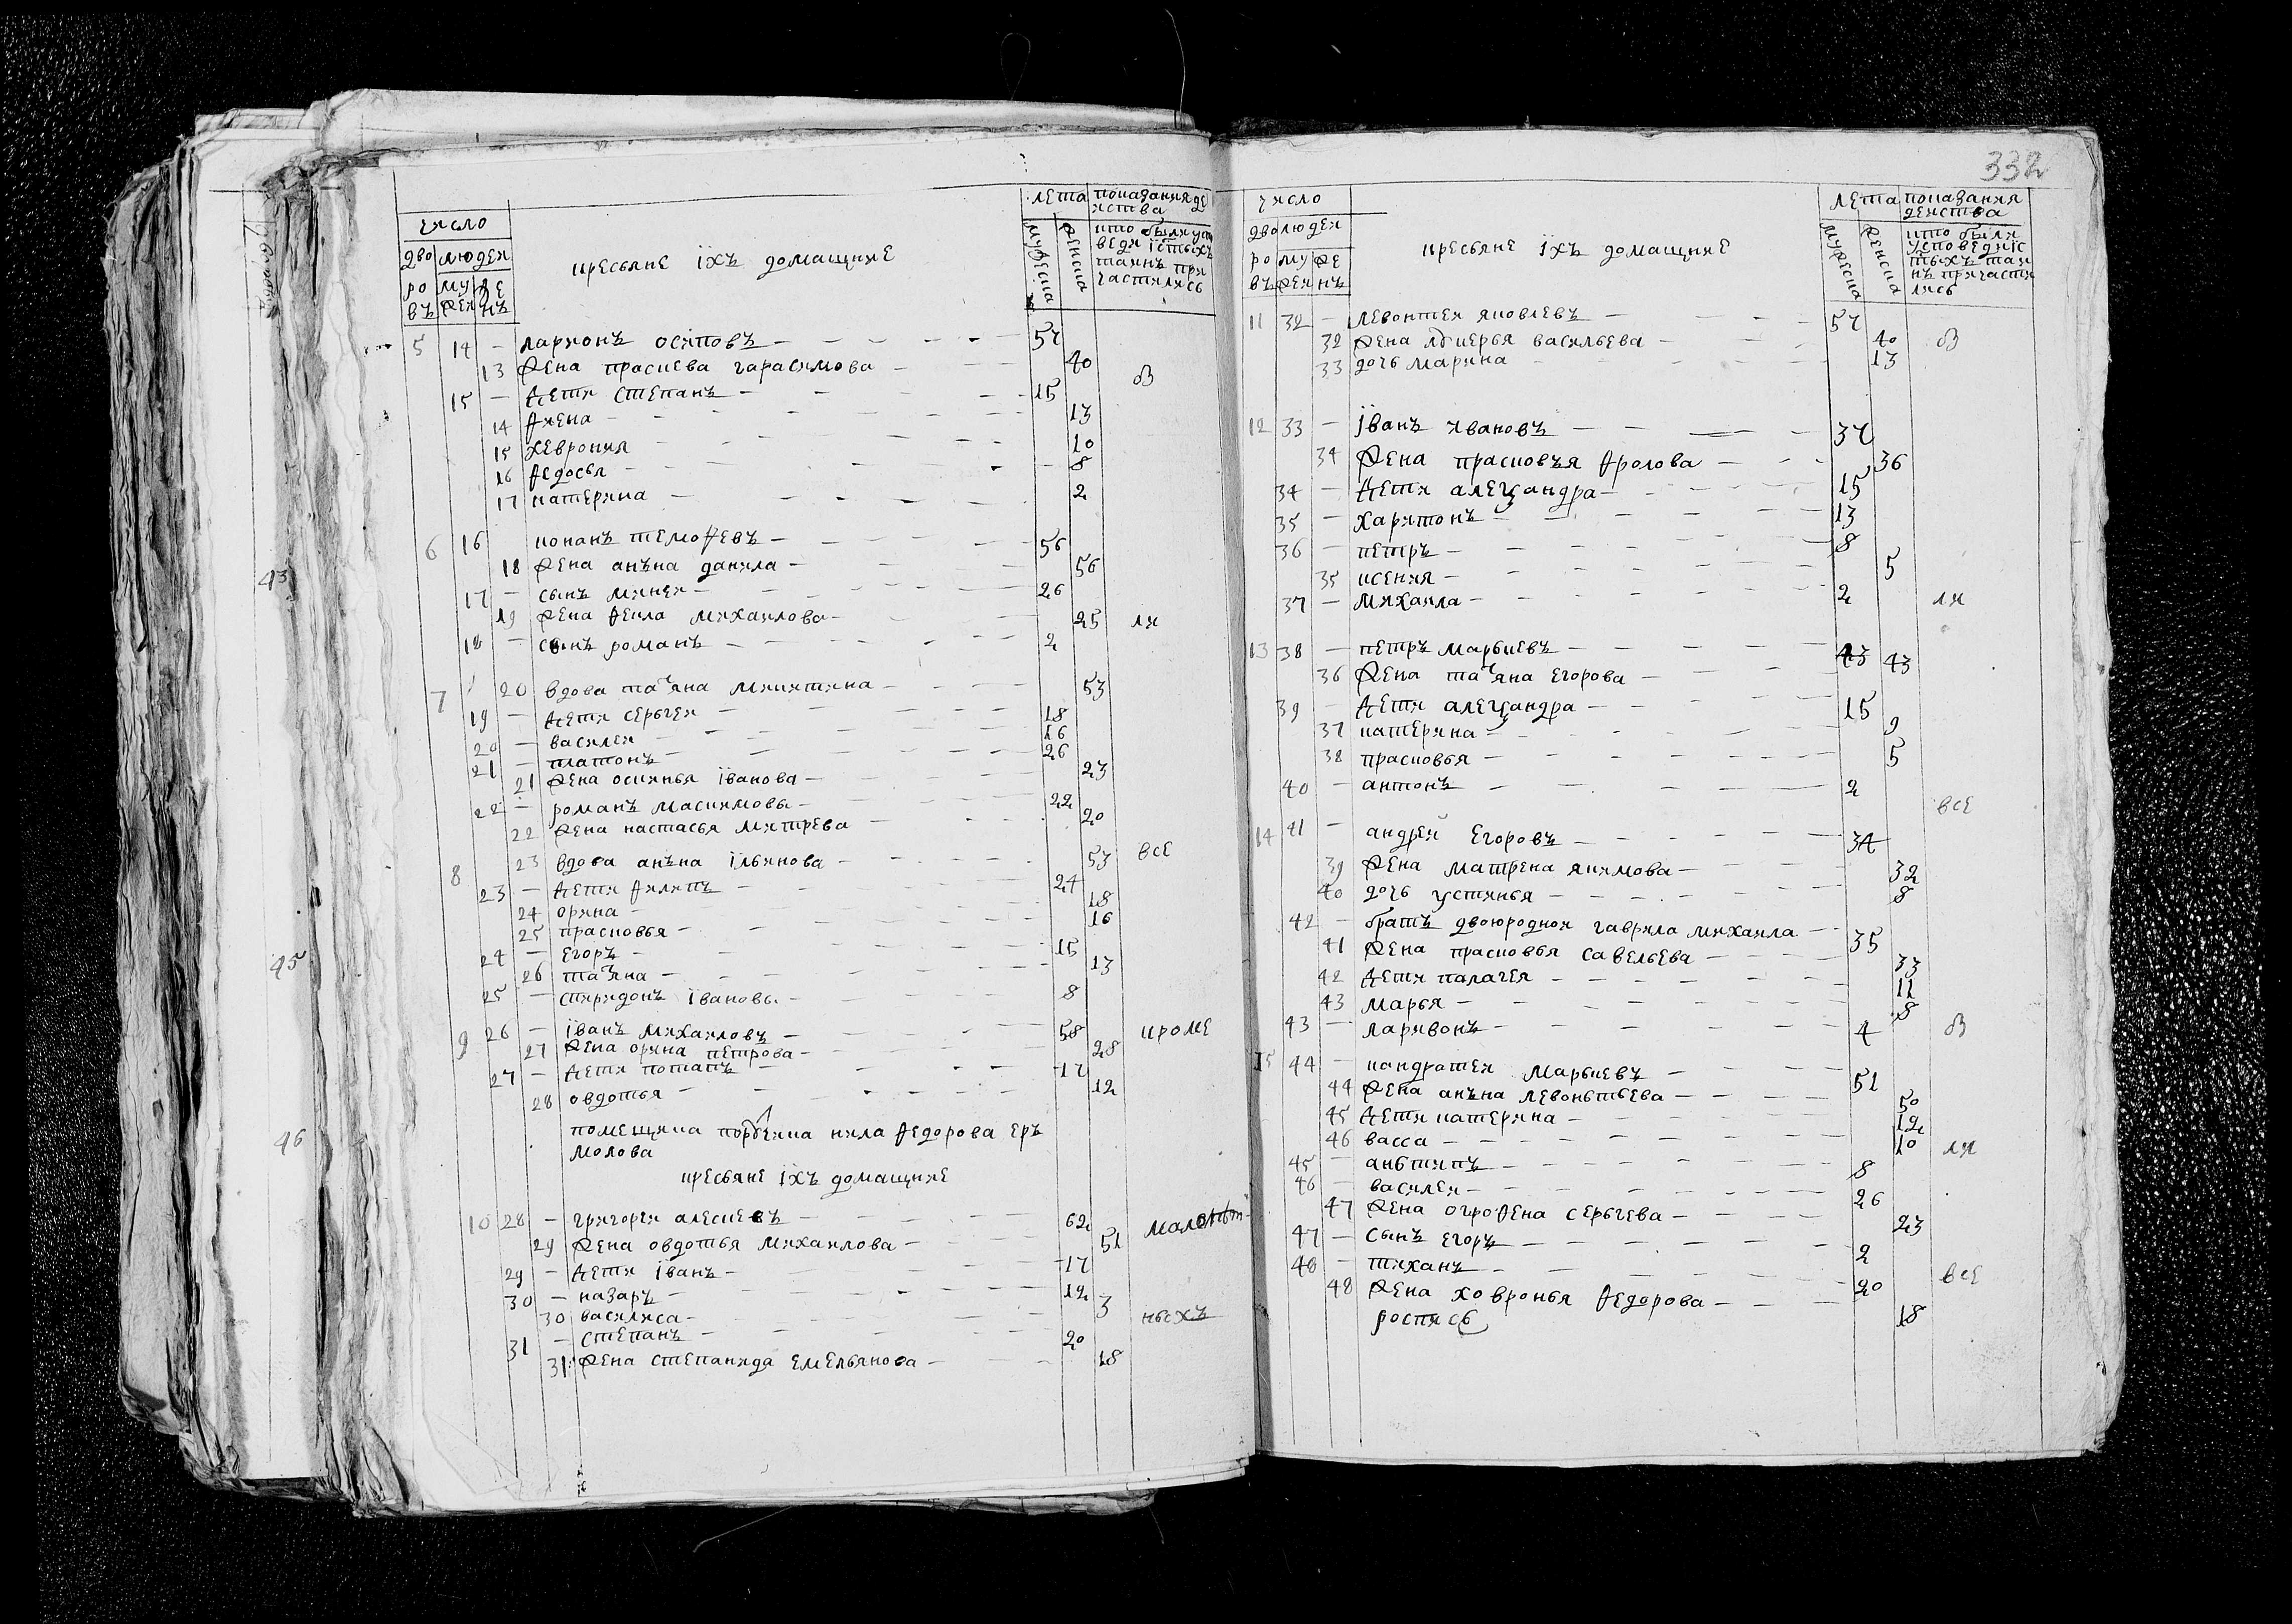 число
дворовъ людей
мужей женъ
кресьяне їхъ домащние
лета
мужеска женска
показания действа
кто были у исповеди ї стыхъ таинъ причастились
5 14 – ларионъ осиповъ – 57
13 жена прасцева гарасимова – 40
15 – дети степанъ – 15
14 Фиена – 13
15 хеврония – 10
16 федосья – 8
17 катерина – 2
6 16 конанъ темофевъ – 56
18 жена анъна данила – 56
17 – сынъ микей – 26
19 жена фекла михаилова – 25
18 – сынъ романъ – 2
7 20 вдова татяна микитина – 53
19 – дети серьгей – 18
20 – василей – 16
21 – платонъ – 26
21 жена осинья їванова – 23
22 – романъ масимовы – 22
22 жена настасья митрева – 20
8 23 вдова анъна їльинова – 53
23 – дети филипъ – 24
24 орина – 18
25 прасковья – 16
24 – егоръ – 15
26 татяна – 13
25 – спиридонъ ївановы – 8
9 26 – їванъ михаиловъ – 58
27 жена орина петрова – 28
27 – дети потапъ – 17
28 овдотья – 12
помещика порутчика кила федорова ерь
молова
кресьяне їхъ домащние
10 28 – григорей алексиевъ – 62
29 жена овдотья михаилова – 51
29 – дети їванъ – 17
30 – назаръ – 12
30 василиса – 3
31 – степанъ – 20
31 жена степанида емельянова – 18
ѿ
ли
все
кроме
малолѣт
ныхъ
43
45
46
332
число
дворовъ людей
мужей женъ
кресьяне їхъ домащние
лета
мужеска женска
показания действа
кто были у исповеди ї стыхъ таинъ причастились
11 32 – левонтей яковлевъ – 57
32 жена лукерья васильева – 40
33 дочь марина – 13
12 33 – їванъ ивановъ – 37
34 жена прасковъя фролова – 36
34 – дети алеѯандра – 15
35 – харитонъ – 13
36 – петръ – 8
35 ксения – 5
37 – михаила – 2
13 38 – петръ марькевъ – 43
36 жена татяна егорова – 43
39 – дети алеѯандра – 15
37 катерина – 9
38 прасковья – 5
40 – антонъ – 2
14 41 – андрей егоровъ – 34
39 жена матрена якимова – 32
40 дочь устинья – 8
42 – братъ двоюродной гаврила михаила – 35
41 жена прасковья савельева – 33
42 дети палагея – 11
43 марья – 8
43 – ларивонъ – 4
15 44 – кандратей марькевъ – 51
44 жена анъна левоньтьева – 50
45 дети катерина – 12
46 васса – 10
45 – аньтипъ – 8
46 – василей – 26
47 жена огрофена серьгева – 23
47 – сынъ егоръ – 2
48 – тиханъ – 20
48 жена ховронья федорова – 18
роспись
ѿ
ли
все
ѿ
ли
все